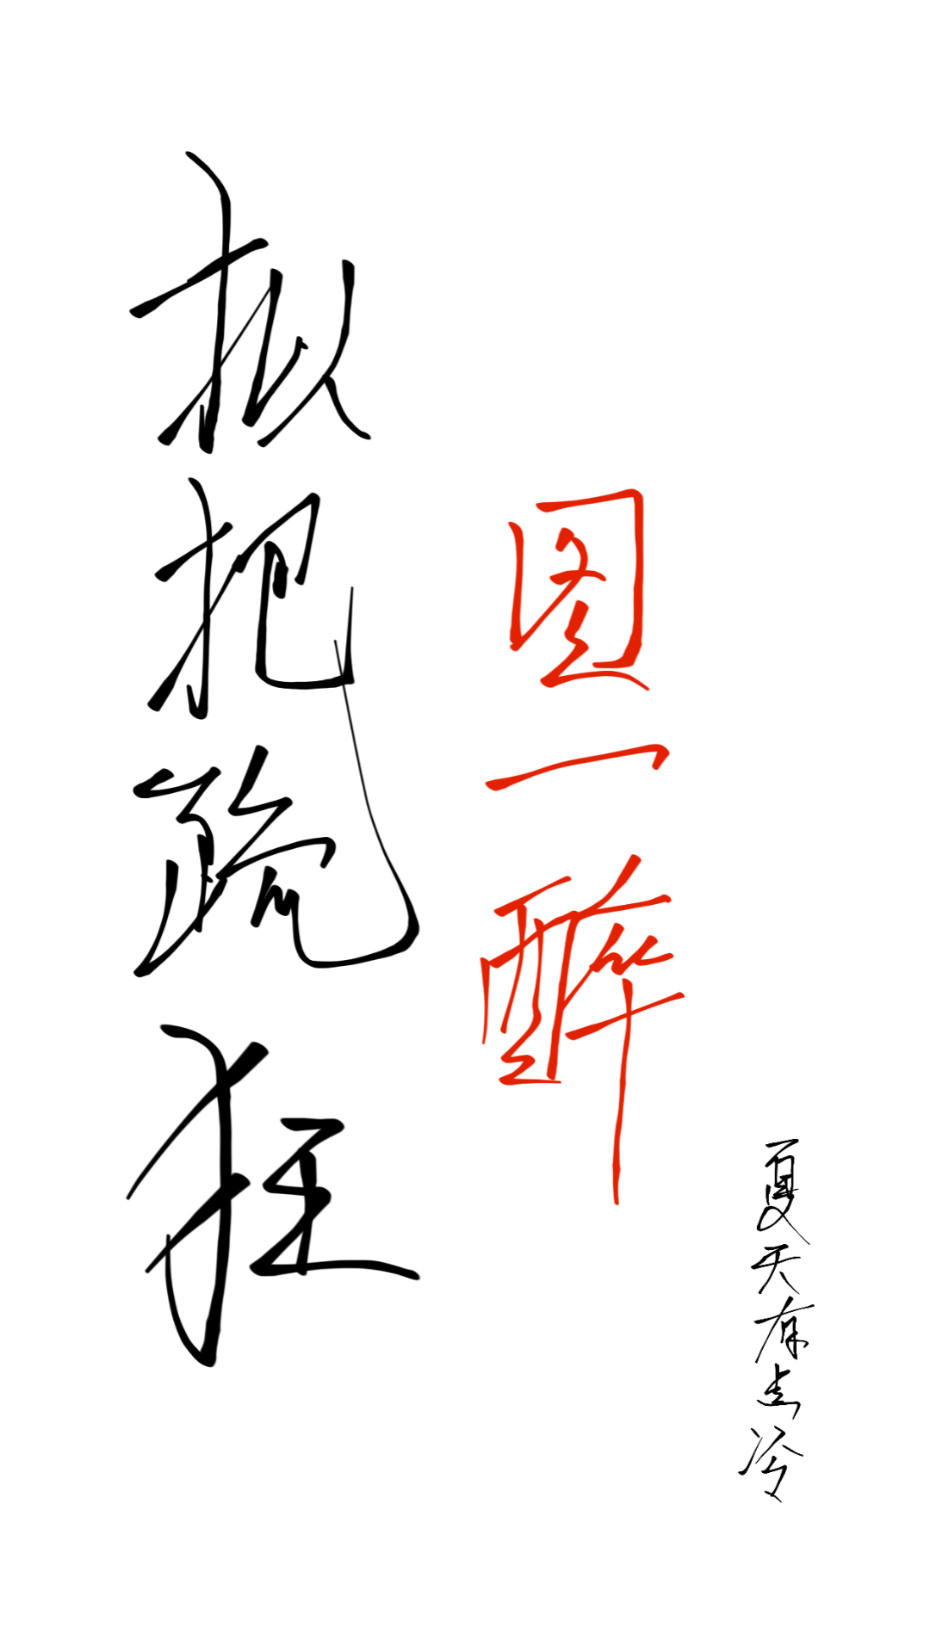 拟把疏狂
图一醉
夏天有点冷